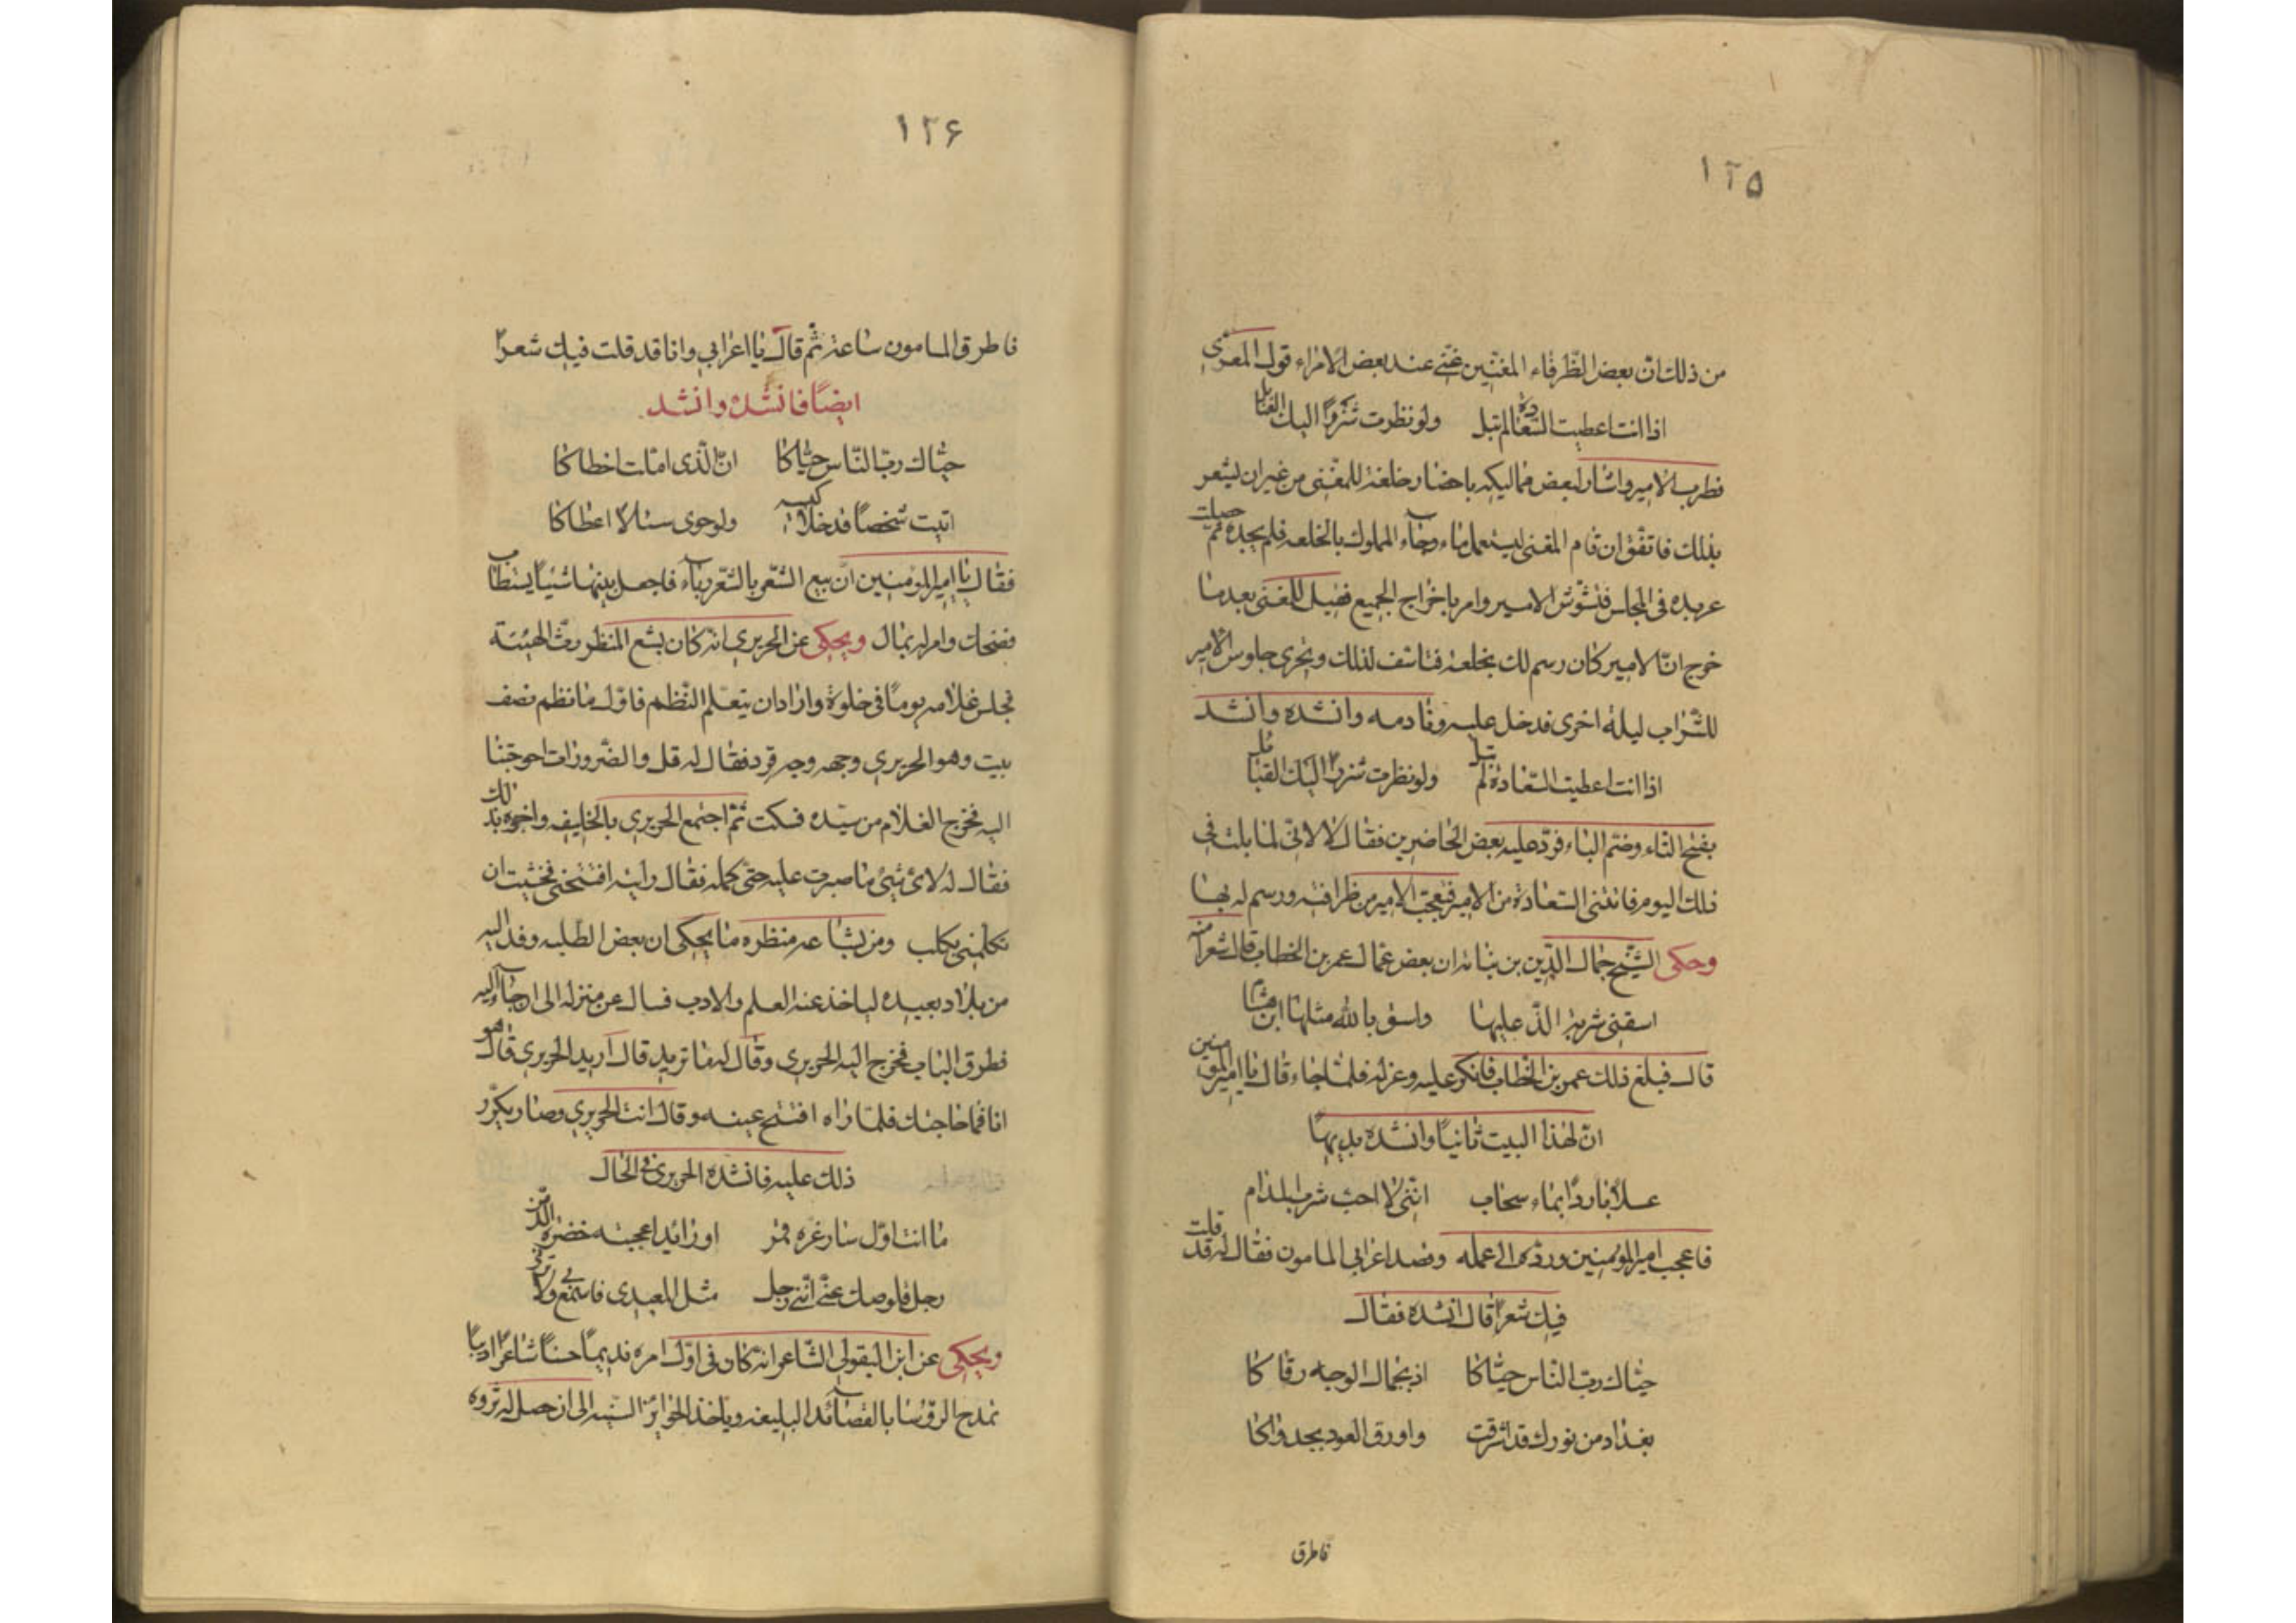 ١٢٥
من ذلك ان بعض الظرفاء المغنين غنى عند بعض الامراء قول المعرى
اذا انت اعطيت السعادة لم تبل ولو نظرت شزرًا اليك القبايل
فطرب الامير واشار لبعض مماليكه باحضار خلعة للمغنى من غير ان يشعر
بذلك فاتفق ان قام المغنى ليستعمل ماء وجاء المملوك بالخلعه فلم يجده ثم حصلت
عربده فى المجلس فتشوش الامير وامر باخراج الجميع فقيل للمغنى بعد ما
خرج ان الامير كان رسم لك بخلعة فتاسف لذلك وتحرى جلوس الامير
للشراب ليلة اخرى فدخل عليه ونادمه وانشده وانشد
اذا انت اعطيت السعادة لم تبل ولو نظرت شزرًا اليك القبايل
بفتح التاء وضم الباء فرد عليه بعض الحاضرين فقال لا لانى لما بلت فى
ذلك اليوم فاتتنى السعادة من الامير فتعجب الامير من ظرافته ورسم له بها
وحكى الشيخ جمال الدين بن نباته ان بعض عمال عمر بن الخطاب قال شعرا منه
اسقنى شربة الذ عليها واسق بالله مثلها ابن هشام
قال فبلغ ذلك عمر بن الخطاب فانكر عليه وعزله فلما جاء قال يا امير المؤمنين
ان لهذا البيت ثانيًا وانشده بديهًا
عسلا باردًا بماء سحاب اننى لا احب شرب المدام
فاعجب امير المؤمنين ورده الى عمله وقصد اعرابى المامون فقال له قد قلت
فيك شعرًا قال انشده فقال
حياك رب الناس حياكا اذ بجمال الوجه رقاكا
بغداد من نورك قد اشرقت واورق العود بجدواكا
فاطرق
١٢۶
فاطرق المامون ساعة ثم قال يا اعرابي وانا قد قلت فيك شعرًا
ايضًا فانشده وانشد
حياك رب الناس حياكا ان الذى املت اخطاكا
اتيت شخصًا قد خلا كيسه ولو حوى شيئا لاعطاكا
فقال يا امير المؤمنين ان بيع الشعر بالشعر رباء فاجعل بينهما شيئًا يستطاب
فضحك وامر له بمال ويحكى عن الحريري انه كان بشع المنظر رث الهيئة
فجلس غلامه يومًا فى خلوة واراد ان يتعلم النظم فاول ما نظم نصف
بيت وهو الحريري وجهه وجه قرد فقال له قل والضرورات احوجتنا
اليه فخرج الغلام من سيده فسكت ثم اجتمع الحريري بالخليفه واخبره بذلك
فقال له لاى شئ ما صبرت عليه حتى كمله فقال رايته افتتحنى فخشيت ان
تكلمنى بكلب ومن بشاعة منظره ما يحكى ان بعض الطلبه وفد اليه
من بلاد بعيده لياخذ عنه العلم والادب فسال عن منزله الى ان جاء اليه
فطرق الباب فخرج اليه الحريرى وقال له ما تريد قال اريد الحريرى قال هو
انا فما حاجتك فلما راه افتتح عينه وقال انت الحريري وصار يكرر
ذلك عليه فانشده الحريري فى الحال
ما انت اول سار غره قمر او رائد اعجبته خضرة الدمن
رجل قلوصك عنى اننى رجل مثل المعيدى فاسمع بى ولا ترنى
ويحكى عن ابن البقولى الشاعر انه كان فى اول امره نديمًا حسنًا شاعرًا اديبًا
يمدح الرؤسا بالقصائد البليغه وياخذ الجوائز السنيه الى ان حصل له ثروه